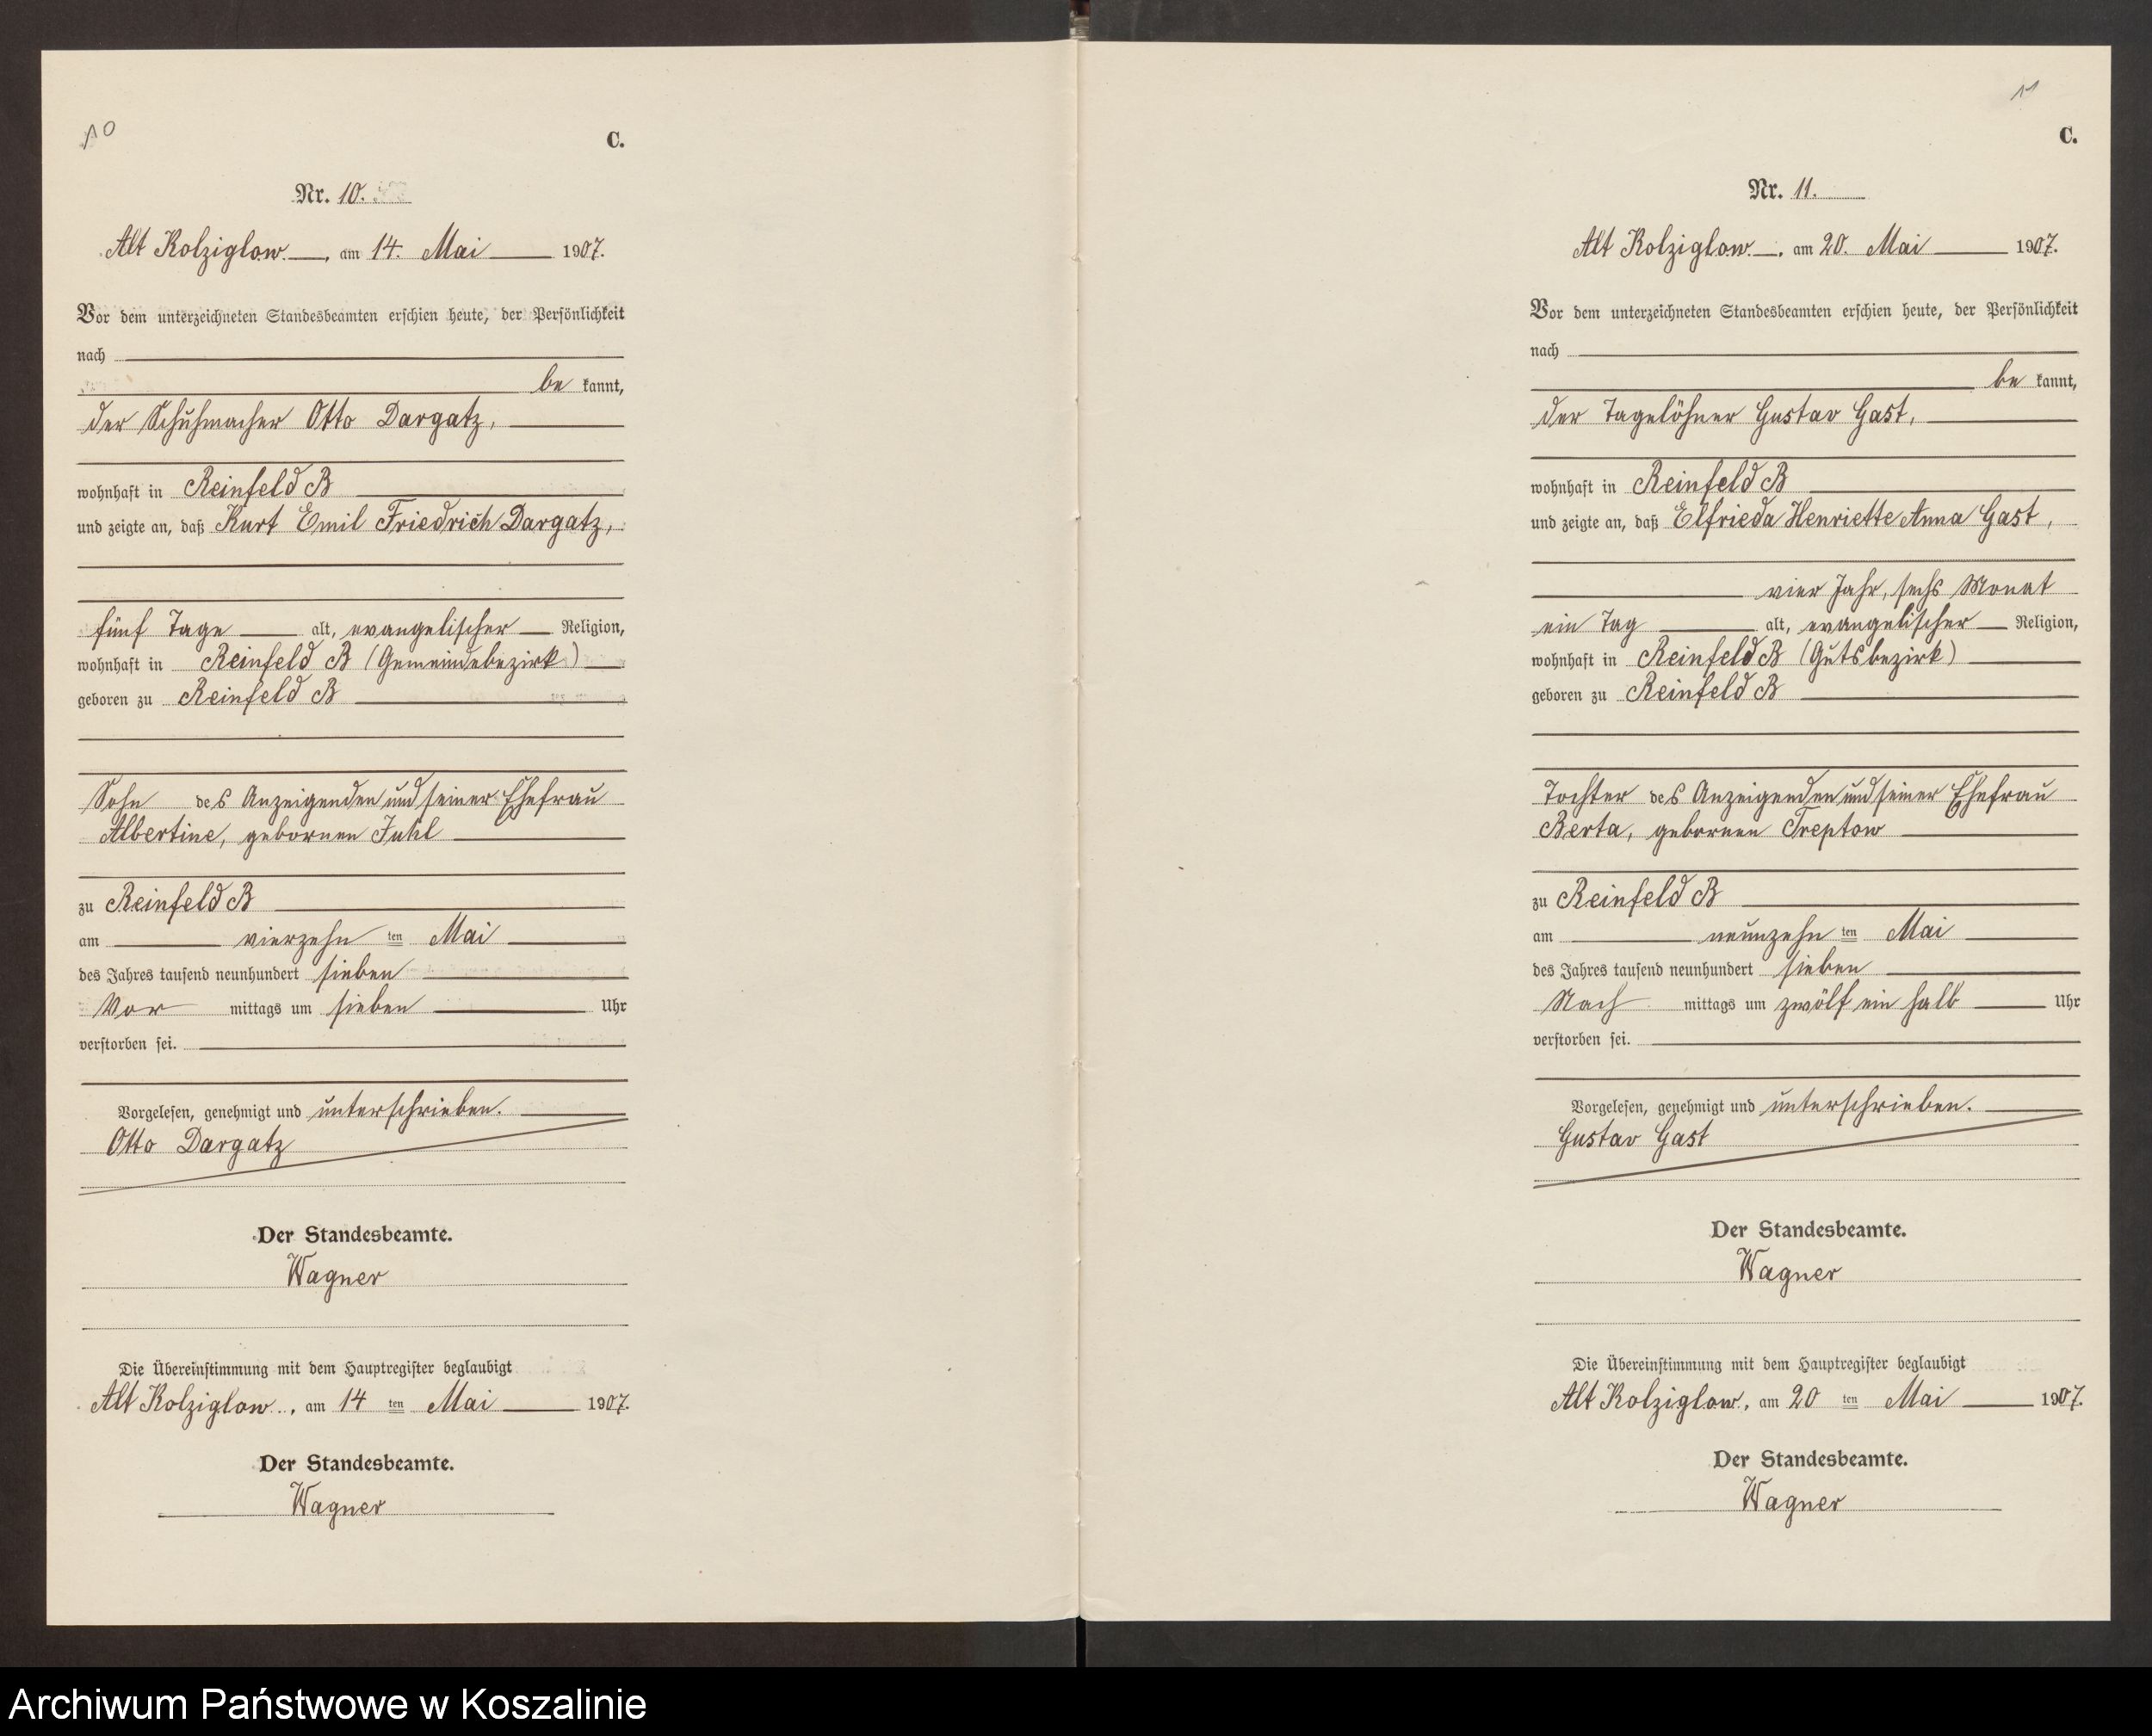 10
C.
Nr. 10.
Alt Kolziglow, am 14. Mai 1907.
Vor dem unterzeichneten Standesbeamten erschien heute, der Persönlichkeit
nach
be kannt,
der Schuhmacher Otto Dargatz,
wohnhaft in Reinfeld B
und zeigte an, daß Kurt Emil Friedrich Dargatz,
fünf Tage alt, evangelischer Religion,
wohnhaft in Reinfeld B (Gemeindebezirk)
geboren zu Reinfeld B
Sohn des Anzeigenden und seiner Ehefrau
Albertine, gebornen Juhl
zu Reinfeld B
am vierzehn ten Mai
des Jahres tausend neunhundert sieben
Vor mittags um sieben Uhr
verstorben sei.
Vorgelesen, genehmigt und unterschrieben.
Otto Dargatz
Der Standesbeamte.
Wagner
Die Übereinstimmung mit dem Hauptregister beglaubigt
Alt Kolziglow, am 14 ten Mai 1907.
Der Standesbeamte.
Wagner
11
C.
Nr. 11.
Alt Kolziglow, am 20. Mai 1907.
Vor dem unterzeichneten Standesbeamten erschien heute, der Persönlichkeit
nach
be kannt,
der Tagelöhner Gustav Gast,
wohnhaft in Reinfeld B
und zeigte an, daß Elfrieda Henriette Anna Gast,
vier Jahr, sechs Monat
ein Tag alt, evangelischer Religion,
wohnhaft in Reinfeld B (Gutsbezirk)
geboren zu Reinfeld B
Tochter des Anzeigenden und seiner Ehefrau
Berta, gebornen Treptow
zu Reinfeld B
am neunzehn ten Mai
des Jahres tausend neunhundert sieben
Nach mittags um zwölf ein halb Uhr
verstorben sei.
Vorgelesen, genehmigt und unterschrieben.
Gustav Gast
Der Standesbeamte.
Wagner
Die Übereinstimmung mit dem Hauptregister beglaubigt
Alt Kolziglow, am 20 ten Mai 1907.
Der Standesbeamte.
Wagner
Archiwum Państwowe w Koszalinie